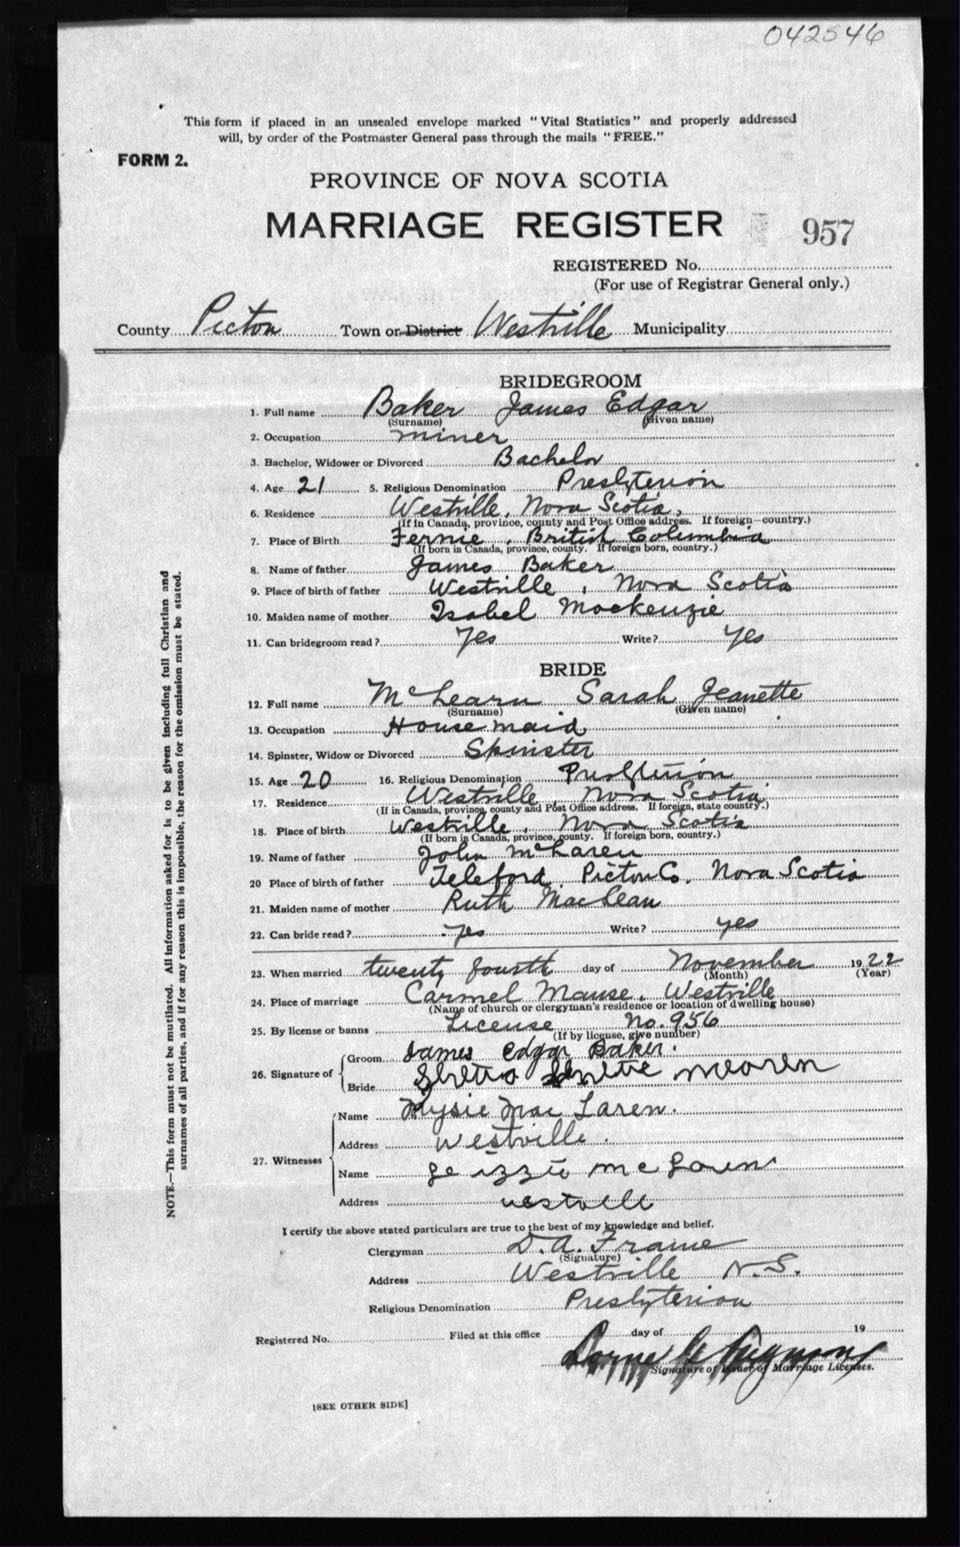 042546
This form if placed in an unsealed envelope marked "Vital Statistics" and properly addressed
will, by order of the Postmaster General pass through the mails "FREE."
FORM 2.
PROVINCE OF NOVA SCOTIA
MARRIAGE REGISTER 957
REGISTERED No.
(For use of Registrar General only.)
County Picton Town or District Westville Municipality
BRIDEGROOM
1. Full name Baker James Edgar
(Surname) (Given name)
2. Occupation miner
3. Bachelor, Widower or Divorced Bachelor
4. Age 21 5. Religious Denomination Presbyterion
6. Residence Westville, Nova Scotia,
(If in Canada, province, county and Post Office address. If foreign—country.)
7. Place of Birth Fernie, British Columbia
(If born in Canada, province, county. If foreign born, country.)
8. Name of father James Baker
9. Place of birth of father Westville, Nova Scotia
10. Maiden name of mother Isabel Mackenzie
11. Can bridegroom read? Yes Write? Yes
BRIDE
12. Full name McLearn Sarah Jeanette
(Surname) (Given name)
13. Occupation House maid
14. Spinster, Widow or Divorced Spinster
15. Age 20 16. Religious Denomination
17. Residence Westville Nova Scotia
(If in Canada, province, county and Post Office address. If foreign, state country.)
18. Place of birth Westville, Nova Scotia
(If born in Canada, province, county. If foreign born, country.)
19. Name of father John McLaren
20 Place of birth of father Teleford, Picton Co, Nova Scotia
21. Maiden name of mother Ruth MacLean
22. Can bride read? Yes Write? yes
23. When married twenty fourth day of November 1922
(Month) (Year)
24. Place of marriage Carmel Manse, Westville
(Name of church or clergyman's residence or location of dwelling house)
25. By license or banns License No. 956
(If by license, give number)
26. Signature of Groom James Edgar Baker.
Bride
27. Witnesses
Name Mysie Mac Laren.
Address Westville.
Name Lizzie
Address westville
I certify the above stated particulars are true to the best of my knowledge and belief.
Clergyman D. A. Frame
(Signature)
Address Westville N.S.
Religious Denomination Presbyterion
Registered No. Filed at this office day of 19
Signature of Issuer of Marriage Licenses.
[SEE OTHER SIDE]
NOTE.—This form must not be mutilated. All information asked for is to be given including full Christian and
surnames of all parties, and if for any reason this is impossible, the reason for the omission must be stated.